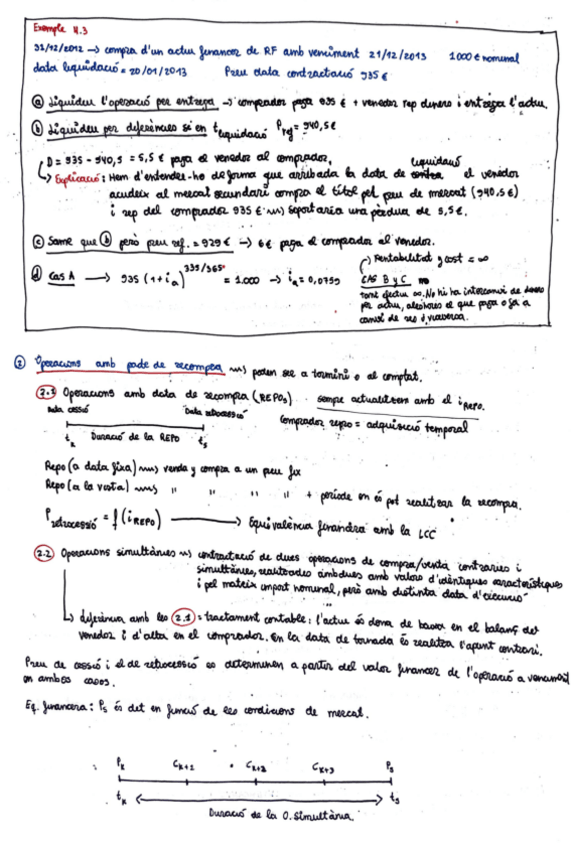 Exemple 4.3
31/12/2012 → compra d'un actiu financer de RF amb venciment 21/12/2013 1000 € nominal
data liquidació = 20/01/2013 Preu data contractació 935 €
a) Liquideu l'operació per entrega → comprador paga 935 € + venedor rep diners i entrega l'actiu.
b) Liquideu per diferències si en t liquidació P ref = 940,5 €
D = 935 - 940,5 = 5,5 € paga el venedor al comprador,
liquidació
Explicació: Hem d'entendre-ho de forma que arribada la data de el venedor
acudeix al mercat secundari compra el títol pel preu de mercat (940,5 €)
i rep del comprador 935 € → suportaria una pèrdua de 5,5 €.
c) Same que b però preu ref. = 929 € → 6 € paga el comprador al venedor.
d) Cas A → 935 (1 + i a)^335/365 = 1.000 → i a = 0,0759
Rentabilitat y cost = ∞
CAS B y C no
tant efectiu ∞. No hi ha intercanvi de diners
per actiu, aleshores el que paga o fa a
canvi de res i viceversa.
2 Operacions amb pacte de recompra → poden ser a termini o al comptat.
2.1 Operacions amb data de recompra (REPOs) sempre actualitzem amb el i REPO.
Data cessió Data retrocessió Comprador repo = adquisició temporal
t k Duració de la REPO t s
Repo (a data fixa) → venda y compra a un preu fix
Repo (a la vista) → " " " " + període en és pot realitzar la recompra.
P retrocessió = f (i REPO) → Equivalència financera amb la LCC
2.2 Operacions simultànies → contractació de dues operacions de compra/venta contraries i
simultànies, realitzades ambdues amb valors d'idèntiques característiques
i pel mateix import nominal, però amb distinta data d'execució
diferència amb les 2.1 = tractament contable: l'actiu és dona de baixa en el balanç del
venedor i d'alta en el comprador. En la data de tornada és realitza l'apunt contrari.
Preu de cessió i el de retrocessió es determinen a partir del valor financer de l'operació a venciment
en ambos casos.
Eq. financera: Ps és det en funció de les condicions de mercat.
P k C k+1 C k+2 C k+3 P s
t k t s
Duració de la O. Simultània.